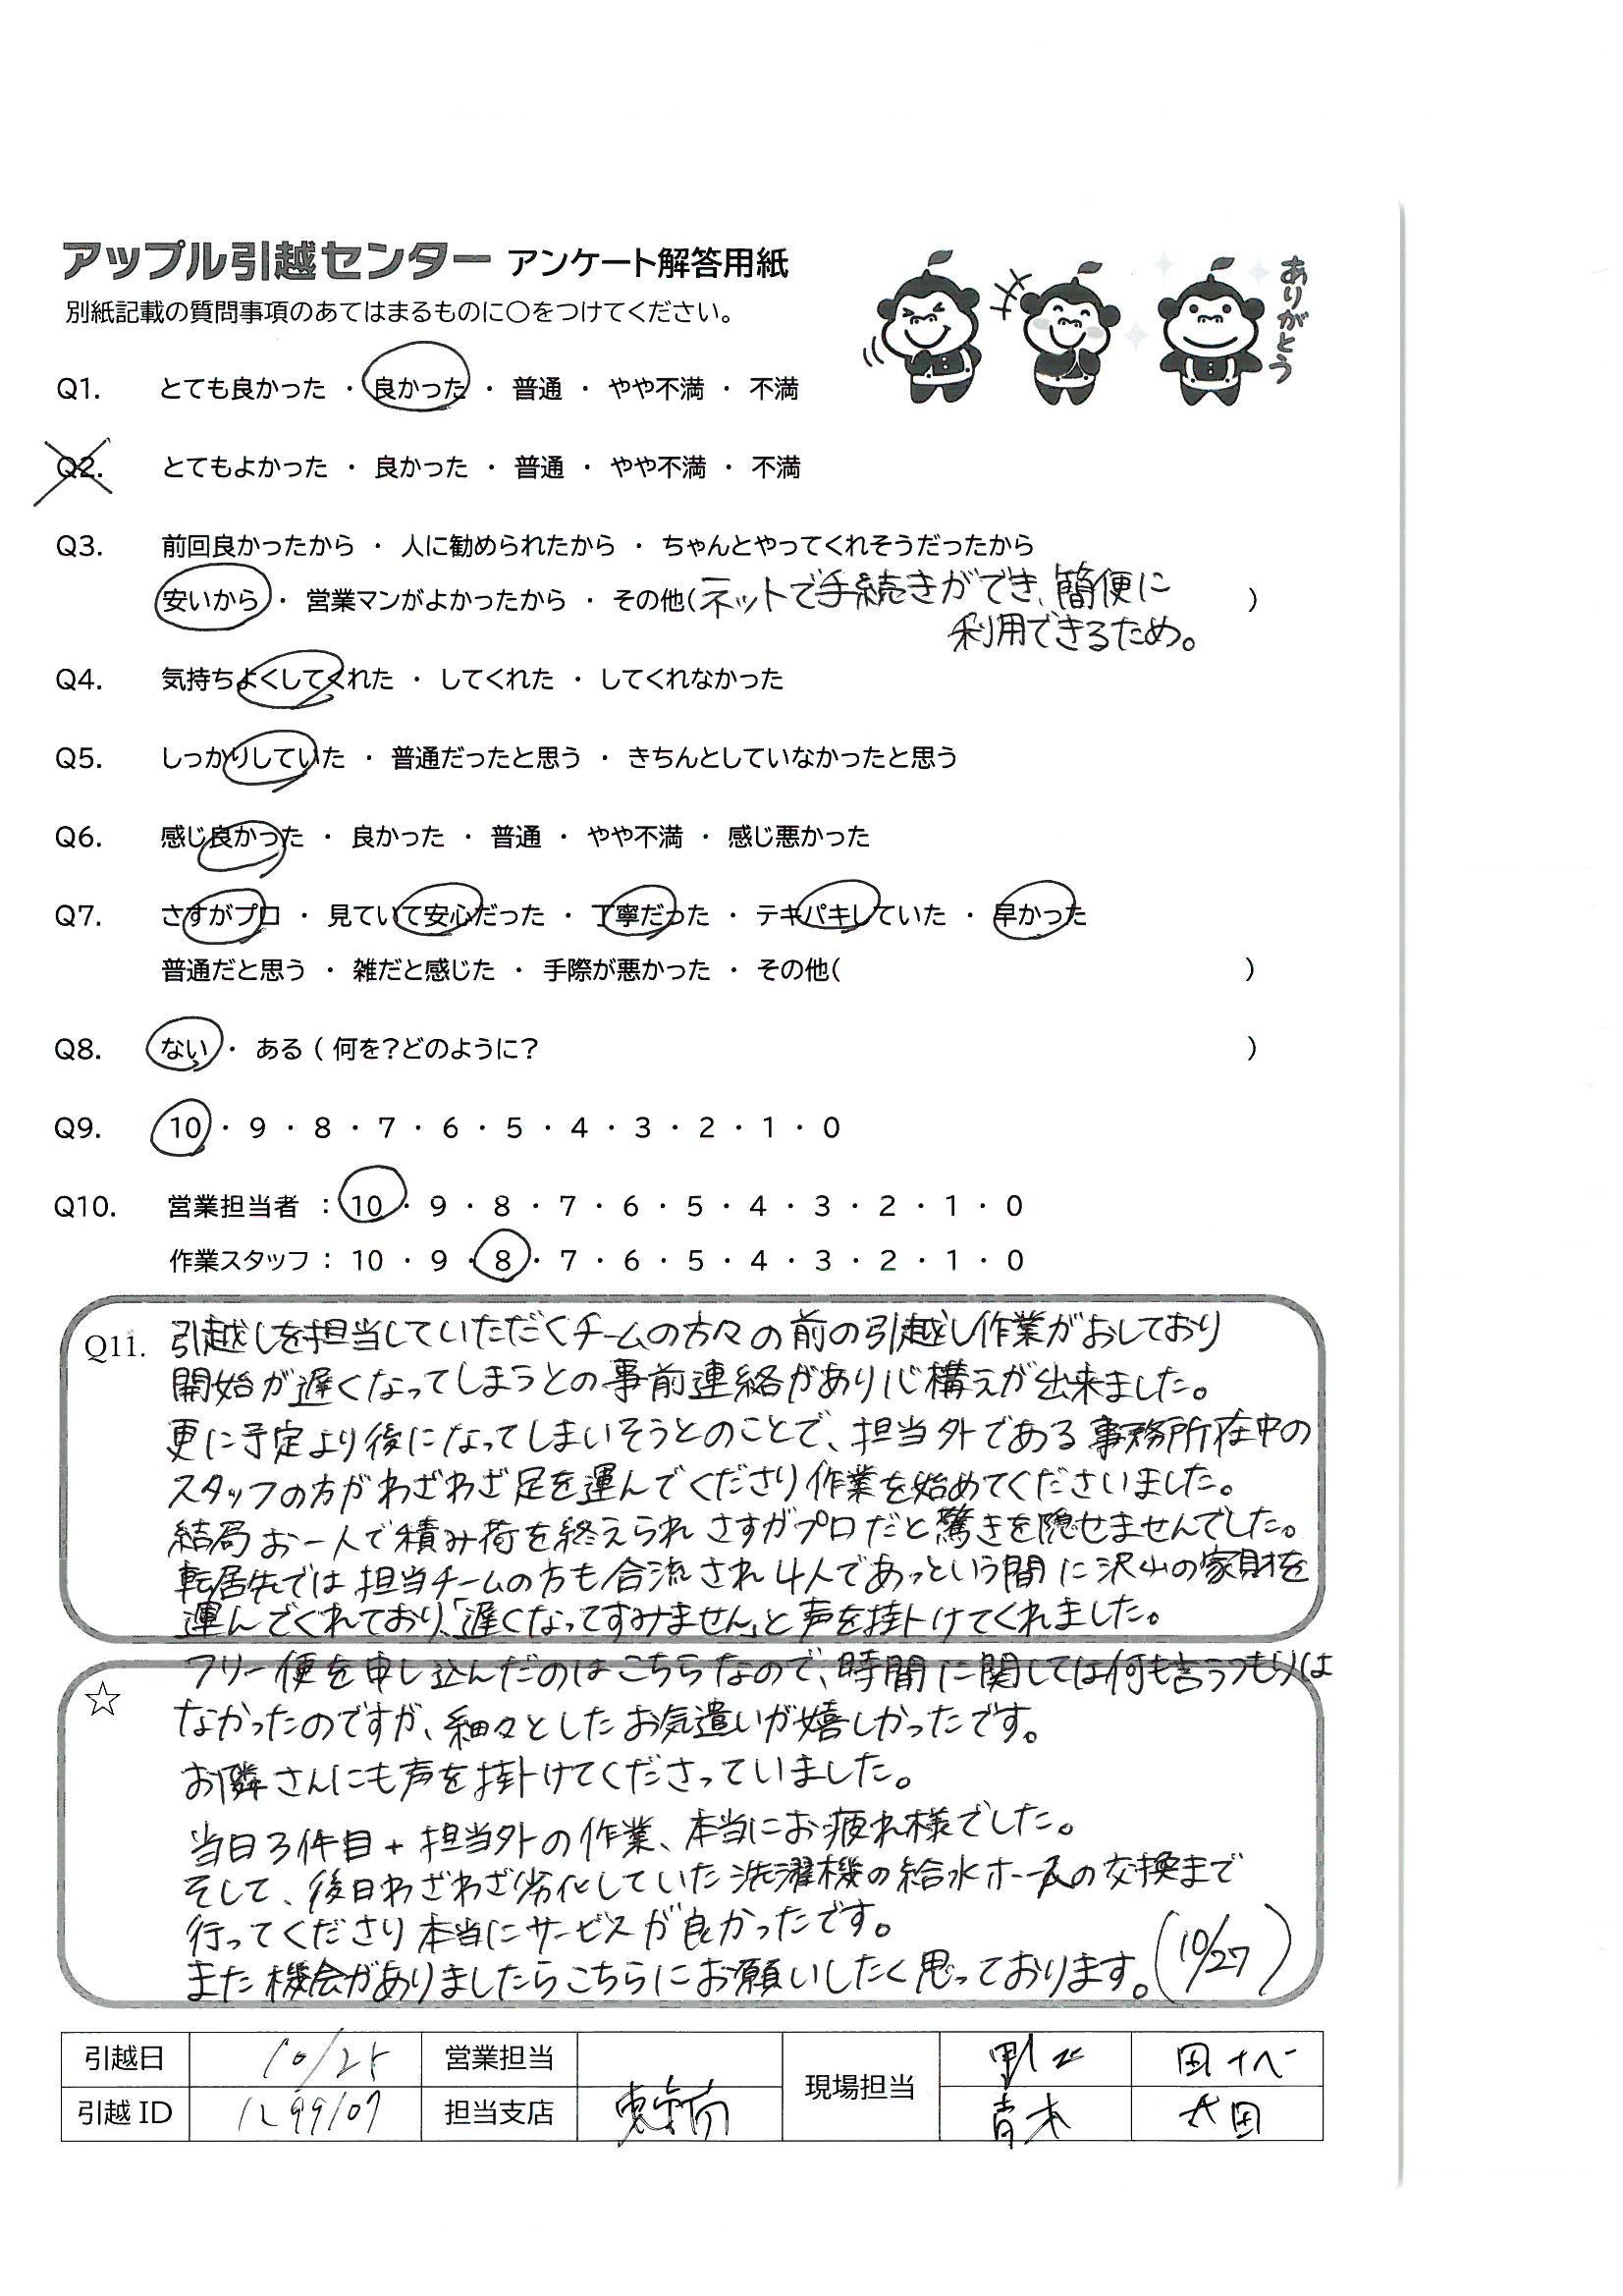 アップル引越センター アンケート解答用紙
別紙記載の質問事項のあてはまるものに○をつけてください。
ありがとう
Q1. とても良かった ・ 良かった ・ 普通 ・ やや不満 ・ 不満
Q2. とてもよかった ・ 良かった ・ 普通 ・ やや不満 ・ 不満
Q3. 前回良かったから ・ 人に勧められたから ・ ちゃんとやってくれそうだったから
安いから ・ 営業マンがよかったから ・ その他(ネットで手続きができ、簡便に )
利用できるため。
Q4. 気持ちよくしてくれた ・ してくれた ・ してくれなかった
Q5. しっかりしていた ・ 普通だったと思う ・ きちんとしていなかったと思う
Q6. 感じ良かった ・ 良かった ・ 普通 ・ やや不満 ・ 感じ悪かった
Q7. さすがプロ ・ 見ていて安心だった ・ 丁寧だった ・ テキパキしていた ・ 早かった
普通だと思う ・ 雑だと感じた ・ 手際が悪かった ・ その他( )
Q8. ない ・ ある ( 何を?どのように? )
Q9. 10 ・ 9 ・ 8 ・ 7 ・ 6 ・ 5 ・ 4 ・ 3 ・ 2 ・ 1 ・ 0
Q10. 営業担当者 : 10 ・ 9 ・ 8 ・ 7 ・ 6 ・ 5 ・ 4 ・ 3 ・ 2 ・ 1 ・ 0
作業スタッフ : 10 ・ 9 ・ 8 ・ 7 ・ 6 ・ 5 ・ 4 ・ 3 ・ 2 ・ 1 ・ 0
Q11. 引越しを担当していただくチームの方々の前の引越し作業がおしており
開始が遅くなってしまうとの事前連絡があり心構えが出来ました。
更に予定より後になってしまいそうとのことで、担当外である事務所在中の
スタッフの方がわざわざ足を運んでくださり作業を始めてくださいました。
結局お一人で積み荷を終えられさすがプロだと驚きを隠せませんでした。
転居先では担当チームの方も合流され4人であっという間に沢山の家財を
運んでくれており、「遅くなってすみません」と声を掛けてくれました。
フリー便を申し込んだのはこちらなので、時間に関しては何も言うつもりは
☆ なかったのですが、細々としたお気遣いが嬉しかったです。
お隣さんにも声を掛けてくださっていました。
当日3件目+担当外の作業、本当にお疲れ様でした。
そして、後日わざわざ劣化していた洗濯機の給水ホースの交換まで
行ってくださり本当にサービスが良かったです。
また機会がありましたらこちらにお願いしたく思っております。(10/27)
引越日 10/25 営業担当 現場担当
引越ID 1299107 担当支店 青木 太田